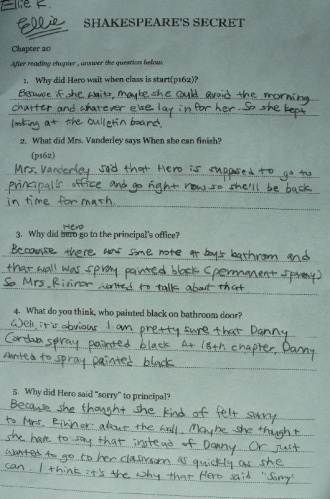 Ellie K.
Ellie
SHAKESPEARE'S SECRET
Chapter 20
After reading chapter, answer the question below.
1. Why did Hero wait when class is start(p162)?
Because if she waits, maybe she could avoid the morning
chatter and whatever else lay in for her. So she kept
looking at the bulletin board.
2. What did Mrs. Vanderley says When she can finish?
(p162)
Mrs. Vanderley said that Hero is supposed to go to
principal's office and go right now so she'll be back
in time for math.
Hero
3. Why did hero go to the principal's office?
Because there was some note at boys bathroom and
that wall was spray painted black (permanent spray)
So Mrs. Rinnor wanted to talk about that
4. What do you think, who painted black on bathroom door?
Well, it's obvious I am pretty sure that Danny
Cordova spray painted black. At 18th chapter, Danny
wanted to spray painted black
5. Why did Hero said "sorry" to principal?
Because she thought she kind of felt sorry
to Mrs. Rinnor about the wall. Maybe she thought
she have to say that instead of Danny. Or just
wanted to go to her classroom as quickly as she
can. I think it's the why that Hero said "Sorry"